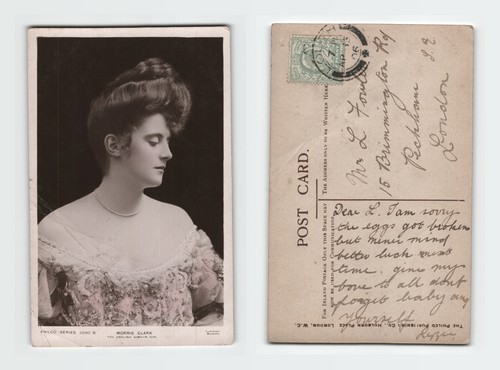 PHILCO SERIES
MORRIS CLARK
THE ENGLISH GIBSON GIRL
POST CARD.
THE ADDRESS ONLY TO BE WRITTEN HERE
FOR INLAND POSTAGE ONLY THIS SPACE MAY
NOW BE USED FOR COMMUNICATION
THE PHILCO PUBLISHING CO. HOLBORN PLACE LONDON, W.C.
AP
06
Mr L
15 Brimmington Rd
Peckham
S.E.
London
Dear L. I am sorry
the eggs got broken
but never mind
better luck next
time. give my
love to all dont
forget baby and
yourself